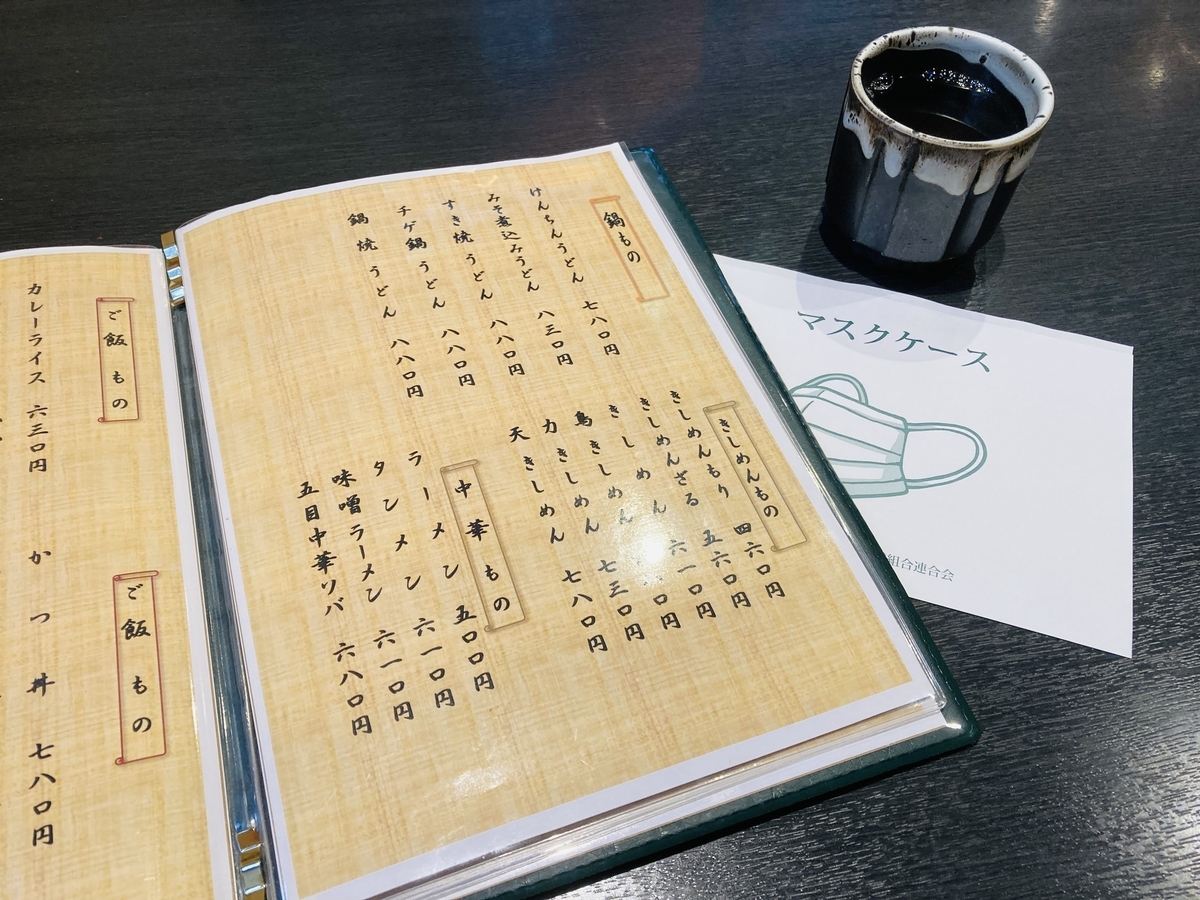 鍋もの
けんちんうどん 七八〇円
みそ煮込みうどん 八三〇円
すき焼うどん 八八〇円
チゲ鍋うどん 八八〇円
鍋焼うどん 八八〇円
きしめんもの
きしめんもり 四六〇円
きしめんざる 五六〇円
きしめん 六一〇円
鳥きしめん 〇円
力きしめん 七三〇円
天きしめん 七八〇円
中華もの
ラーメン 五〇〇円
タンメン 六一〇円
味噌ラーメン 六一〇円
五目中華ソバ 六八〇円
ご飯もの
カレーライス 六三〇円
ご飯もの
かつ丼 七八〇円
マスクケース
組合連合会